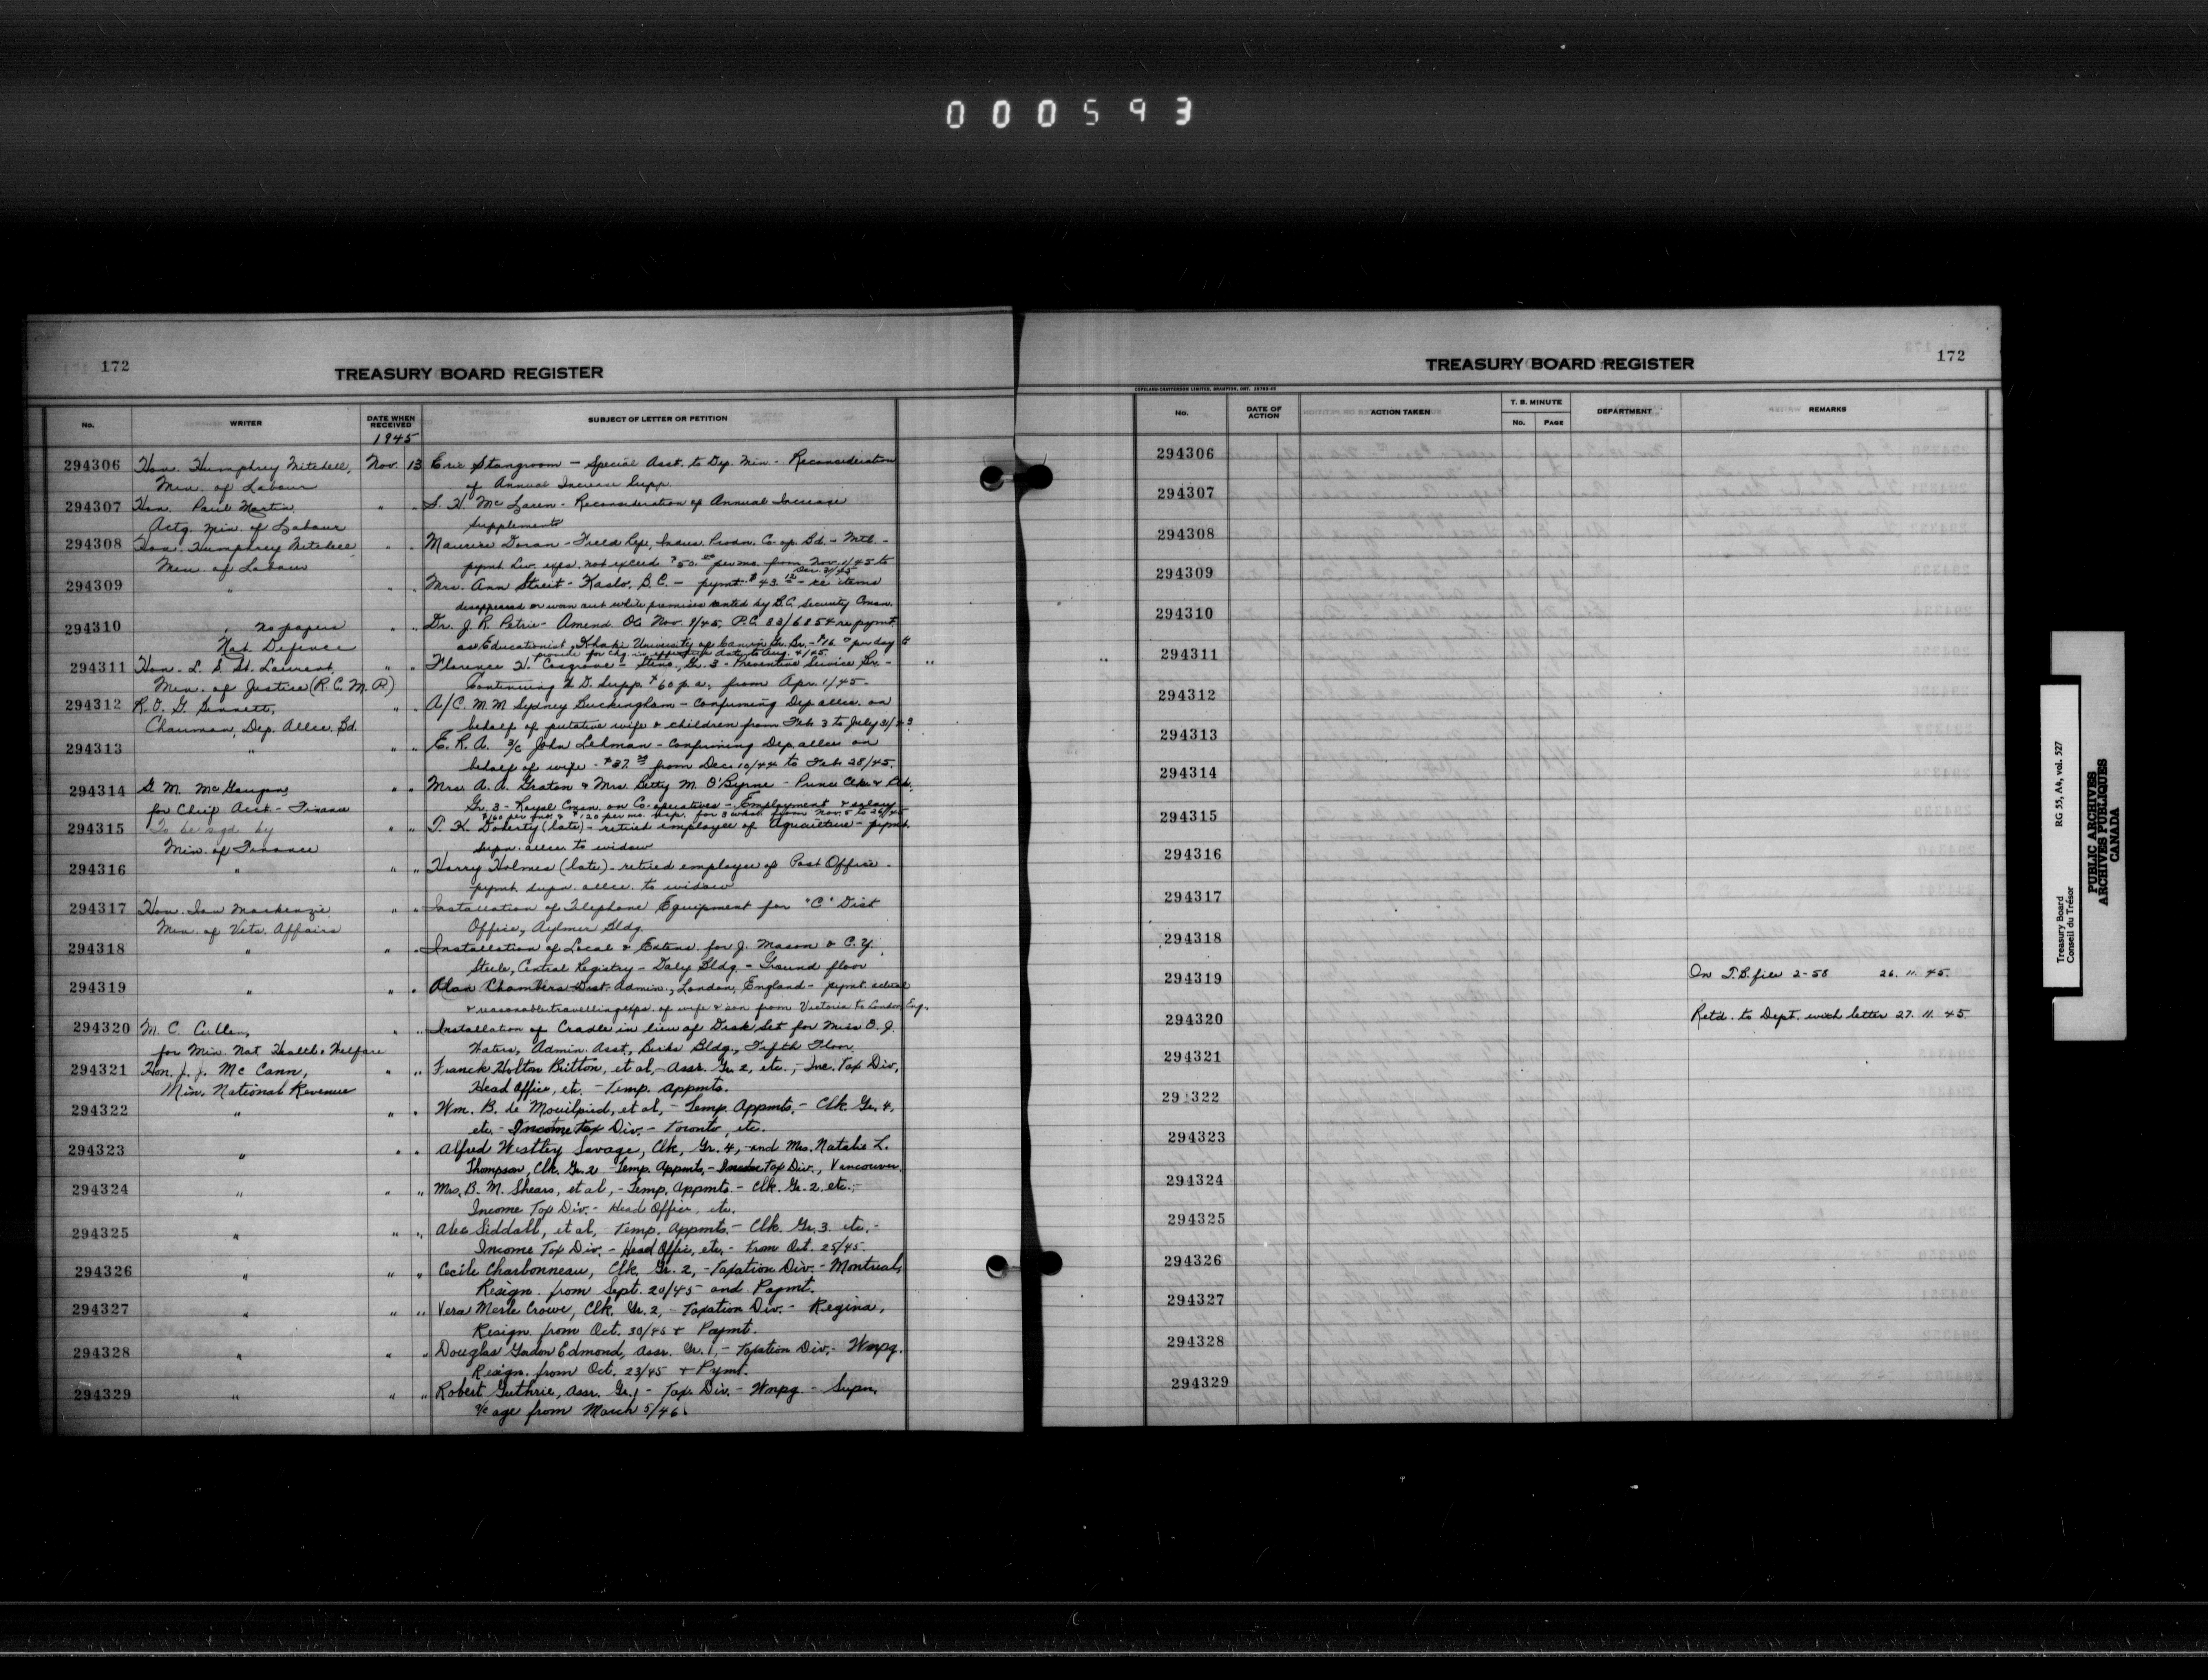 000593
172
TREASURY BOARD REGISTER
No.
WRITER
DATE WHEN RECEIVED
SUBJECT OF LETTER OR PETITION
1945
294306 Hon. Humphrey Mitchell, Nov. 13 Eric Stangroom - Special Asst. to Dep. Min - Reconsideration
Min. of Labour of Annual Increase Supp.
294307 Hon. Paul Martin, " " S. H. McLaren - Reconsideration of Annual Increase
Actg. Min. of Labour Supplements
294308 Hon. Humphrey Mitchell, " " Maurice Doran - Field Rep, Indus. Prodn. Co-op Bd. - Mtl. -
Min. of Labour pymt. Liv. exps. not exceed $50.00 per mo. from Nov. 1/45 to
Dec. 31/45
294309 " " " Mrs. Ann Streit - Kaslo, B.C. - pymt. $43.12 - re items
disappeared or worn out while premises rented by B.C. Security Comn.
294310 " no papers " " Dr. J. R. Petrie - Amend. OC Nov. 9/45, P.C. 83/6854 re pymt.
Nat. Defence as Educationist, Khaki University of Can. in Gr. Br. - $16.00 per day to
provide for chg. in effective date to Aug. 4/45
294311 Hon. L. S. St. Laurent, " " Florence H. Cosgrove - Steno., Gr. 3 - Preventive Service Br. - "
Min. of Justice (R.C.M.P.) Continuing W.D. Supp. $60 p.a., from Apr. 1/45 -
294312 R. O. G. Bennett, " " A/C. M. M. Sydney Buckingham - Confirming Dep. allce. on
Chairman, Dep. Allce. Bd. behalf of putative wife & children from Feb. 3 to July 31/43
294313 " " " E. R. A. 3/c John Lehman - Confirming Dep. allce on
behalf of wife - $37.20 from Dec. 10/44 to Feb. 28/45.
294314 G. M. " " Mrs. A. A. Graton & Mrs. Betty M. O'Byrne - Princ. Clk. & Clk.
for Chief Acct. - Finance Gr. 3 - Royal Comn. on Co-operatives - Employment & salary
$160 per mo. & $120 per mo. resp. for 3 wks. from Nov. 5 to 26/45
294315 To be sgd. by " " T. K. Doherty (late) - retired employee of Agriculture - pymt.
Min. of Finance supn. allce. to widow
294316 " " " Harry Holmes (late) - retired employee of Post Office -
pymt. supn. allce. to widow
294317 Hon. Ian Mackenzie " " Installation of Telephone Equipment for "C" Dist
Min. of Vets. Affairs Office, Aylmer Bldg.
294318 " " " Installation of Local & Extens. for J. Mason & C. Y.
Steele, Central Registry - Daly Bldg. - Ground floor
294319 " " " Alan Chambers - Dist. Admin., London, England - pymt. actual
& reasonable travelling exps. of wife & son from Victoria to London Eng.
294320 M. C. Cullen, " " Installation of Cradle in lieu of Desk Set for Miss O. J.
for Min. Nat Health & Welfare Waters, Admin. Asst., Birks Bldg., Fifth Floor
294321 Hon. J. J. McCann, " " Franck Holton Britton, et al, - Assr. Gr. 2, etc., - Inc. Tax Div,
Min. National Revenue Head Office, etc. - Temp. Appmts.
294322 " " " Wm. B. de Mouilpied, et al, - Temp. Appmts. - Clk. Gr. 4,
etc. - Income Tax Div. - Toronto, etc.
294323 " " " Alfred Westley Savage, Clk, Gr. 4, and Mrs. Natalie L.
Thompson, Clk. Gr. 2 - Temp. Appmts. - Income Tax Div., Vancouver.
294324 " " " Mrs. B. M. Shears, et al, - Temp. Appmts. - Clk. Gr. 2, etc. -
Income Tax Div. - Head Office, etc.
294325 " " " Alec Siddall, et al, Temp. Appmts. - Clk. Gr. 3. etc. -
Income Tax Div. - Head Office, etc. - From Oct. 25/45.
294326 " " " Cecile Charbonneau, Clk. Gr. 2, - Taxation Div. - Montreal,
Resign. from Sept. 20/45 and Paymt.
294327 " " " Vera Merle Crowe, Clk. Gr. 2, - Taxation Div. - Regina,
Resign. from Oct. 30/45 + Paymt.
294328 " " " Douglas Gordon Edmond, Assr. Gr. 1, - Taxation Div. - Wnpg.
Resign. from Oct. 23/45 + Pymt.
294329 " " " Robert Guthrie, Assr. Gr. 1 - Tax. Div. - Wnpg. - Supn.
a/c age from March 5/46.
TREASURY BOARD REGISTER
172
COPELAND-CHATTERSON LIMITED, BRAMPTON, ONT.
No.
DATE OF ACTION
ACTION TAKEN
T. B. MINUTE
No. PAGE
DEPARTMENT
REMARKS
294306
294307
294308
294309
294310
" 294311
294312
294313
294314
294315
294316
294317
294318
294319 On T.B. file 2-58 26. 11. 45.
294320 Retd. to Dept. with letter 27. 11. 45.
294321
29 322
294323
294324
294325
294326
294327
294328
294329
Treasury Board RG 55, A4, vol. 527
Conseil du Trésor
PUBLIC ARCHIVES
ARCHIVES PUBLIQUES
CANADA